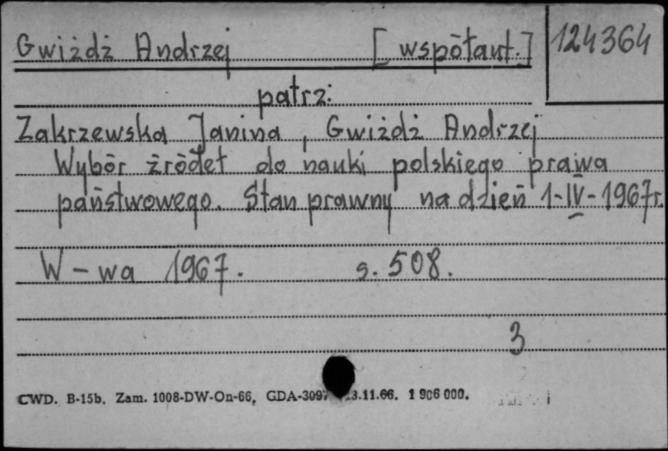 Gwiżdż Andrzej [współaut.] 124364
patrz:
Zakrzewska Janina, Gwiżdż Andrzej
Wybór źródeł do nauki polskiego prawa
państwowego. Stan prawny na dzień 1-IV-1967r.
W-wa 1967. s. 508.
3
CWD. B-15b. Zam. 1008-DW-On-66, GDA-309 3.11.66. 1 906 000.